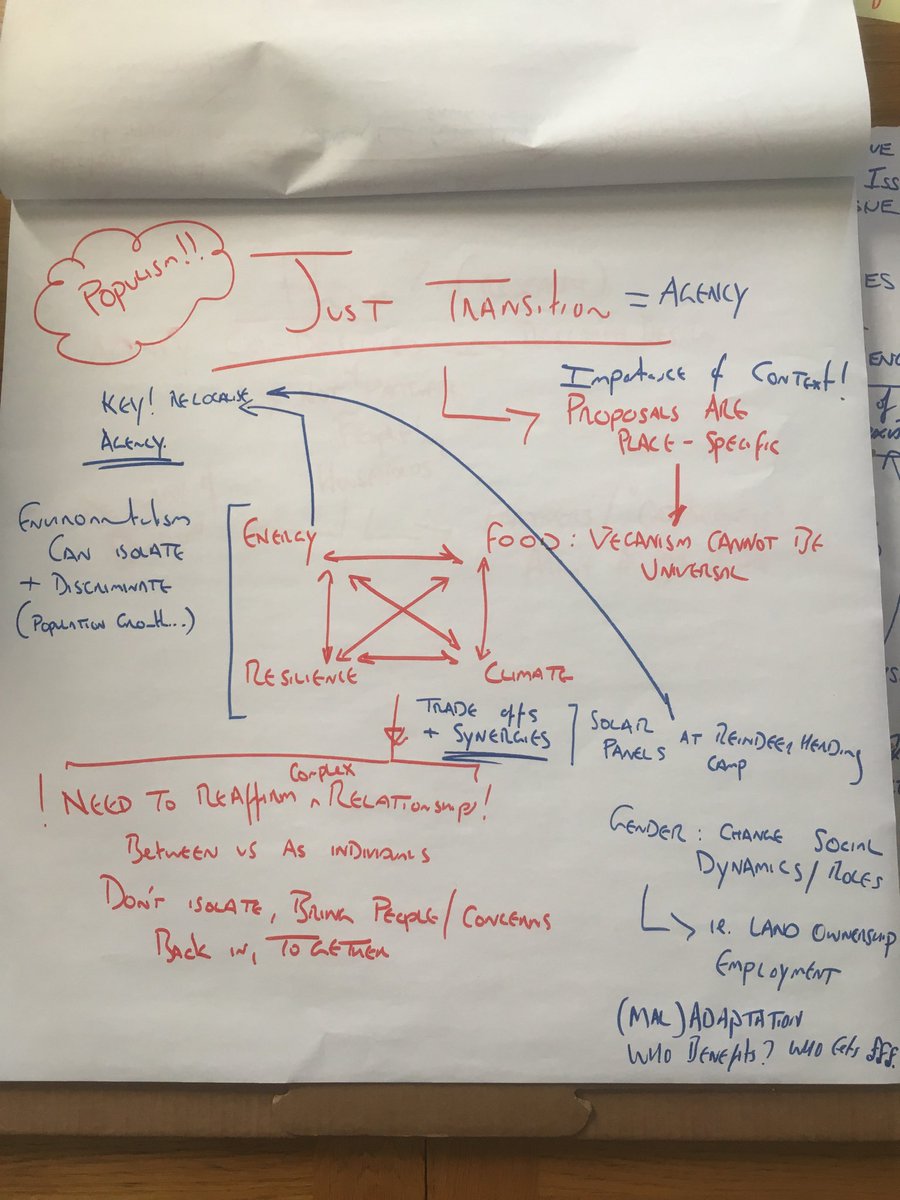 POPULISM!!
JUST TRANSITION = AGENCY
IMPORTANCE of CONTEXT!
PROPOSALS ARE
PLACE - SPECIFIC
KEY! RELOCALISE
AGENCY.
ENVIRONMENTALISM
CAN ISOLATE
+ DISCRIMINATE
(POPULATION GROWTH...)
ENERGY
FOOD: VEGANISM CANNOT BE
UNIVERSAL
RESILIENCE
CLIMATE
TRADE OFFS
+ SYNERGIES
SOLAR
PANELS AT REINDEER HERDING
CAMP
! NEED TO REAFFIRM COMPLEX RELATIONSHIPS!
BETWEEN US AS INDIVIDUALS
DON'T ISOLATE, BRING PEOPLE/CONCERNS
BACK IN, TOGETHER
GENDER: CHANGE SOCIAL
DYNAMICS/ROLES
IE. LAND OWNERSHIP
EMPLOYMENT
(MAL)ADAPTATION
WHO BENEFITS? WHO GETS £££.